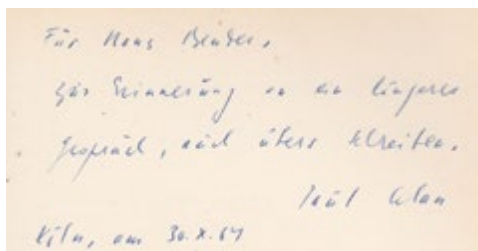 Für Hans Bender,
zur Erinnerung an ein längeres
Gespräch, auch übers Schreiben.
Paul Celan
Köln, am 30.X.64